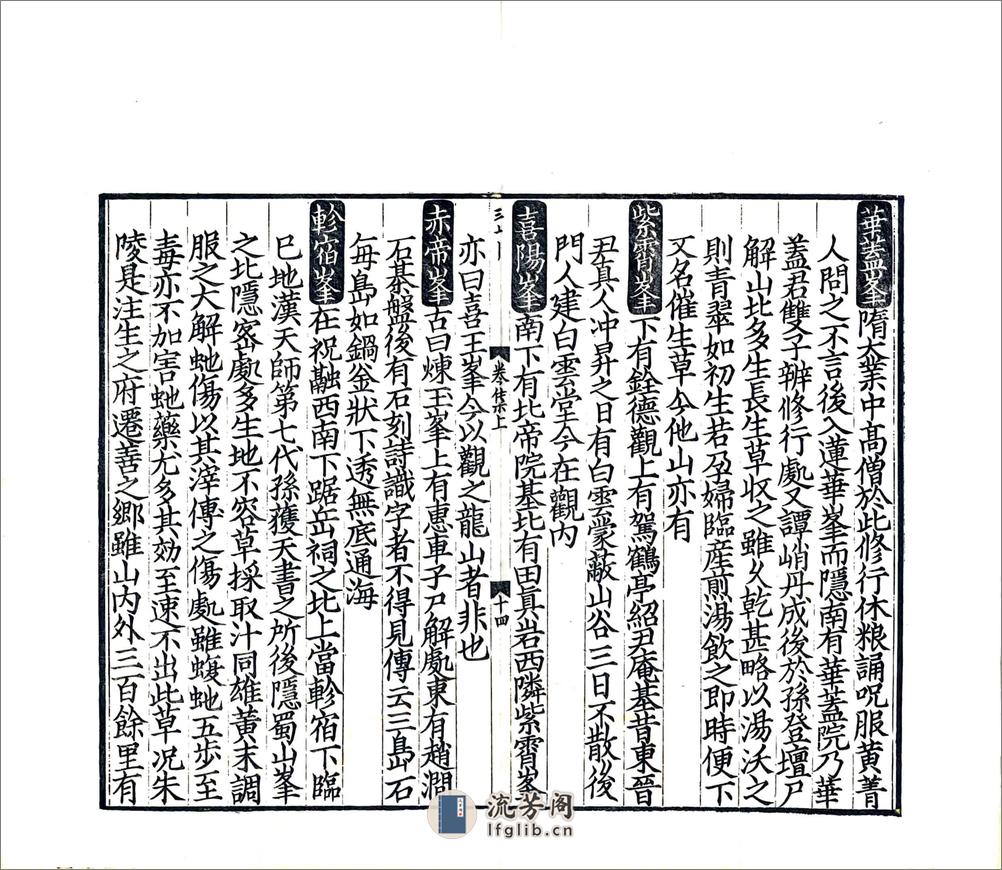 華蓋峯隋大業中髙僧於此修行休粮誦呪服黄菁
人問之不言後入蓮華峯而隱南有華蓋院乃華
蓋君雙子辨修行處又譚峭丹成後於孫登壇尸
解山此多生長生草収之雖乆乾甚略以湯沃之
則青翠如初生若孕婦臨産煎湯飲之即時便下
又名催生草今他山亦有
紫霄峯下有銓德觀上有駕鶴亭紹君庵基昔東晉
君真人冲昇之日有白雲蒙蔽山谷三日不散後
門人建白雲堂今在觀内
喜陽峯南下有北帝院基北有田眞岩西隣紫霄峯
亦曰喜王峯今以觀之龍山者非也
卷集上
十四
赤帝峯古曰煉玉峯上有惠車子尸解處東有趙澗
石棊盤後有石刻詩識字者不得見傳云三島石
每島如鍋釡狀下透無底通海
軫宿峯在祝融西南下踞岳祠之北上當軫宿下臨
巳地漢天師第七代孫獲天書之所後隱蜀山峯
之北隱宻處多生地不容草採取汁同雄黄末調
服之大解虵傷以其滓傳之傷處雖蝮虵五步至
毒亦不加害虵藥尤多其効至速不出此草况朱
陵是注生之府遷善之郷雖山内外三百餘里有
流芳阁
lfglib.cn